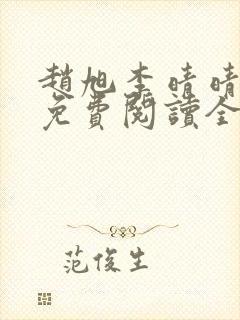 趙旭李晴晴
免費閱讀全
范俊生